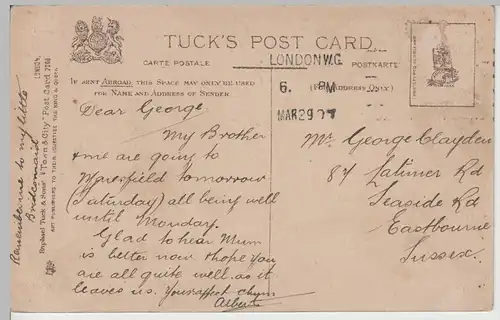 TUCK'S POST CARD
CARTE POSTALE
POSTKARTE
(IF SENT ABROAD, THIS SPACE MAY ONLY BE USED
FOR NAME AND ADDRESS OF SENDER
(FOR ADDRESS ONLY.)
LONDON W.C
6. PM
MAR 29 07
Dear George
My Brother
& me are going to
Maresfield tomorrow
(Saturday) all being well
until Monday.
Glad to hear Mum
is better now & hope you
are all quite well as it
leaves us. Your affect chum
Albert
Mr George Clayden
87 Latimer Rd
Seaside Rd
Eastbourne
Sussex.
Remember me to my little
Bridesmaid
Raphael Tuck & Sons' "Town & City" Post Card
ART PUBLISHERS TO THEIR MAJESTIES THE KING & QUEEN.